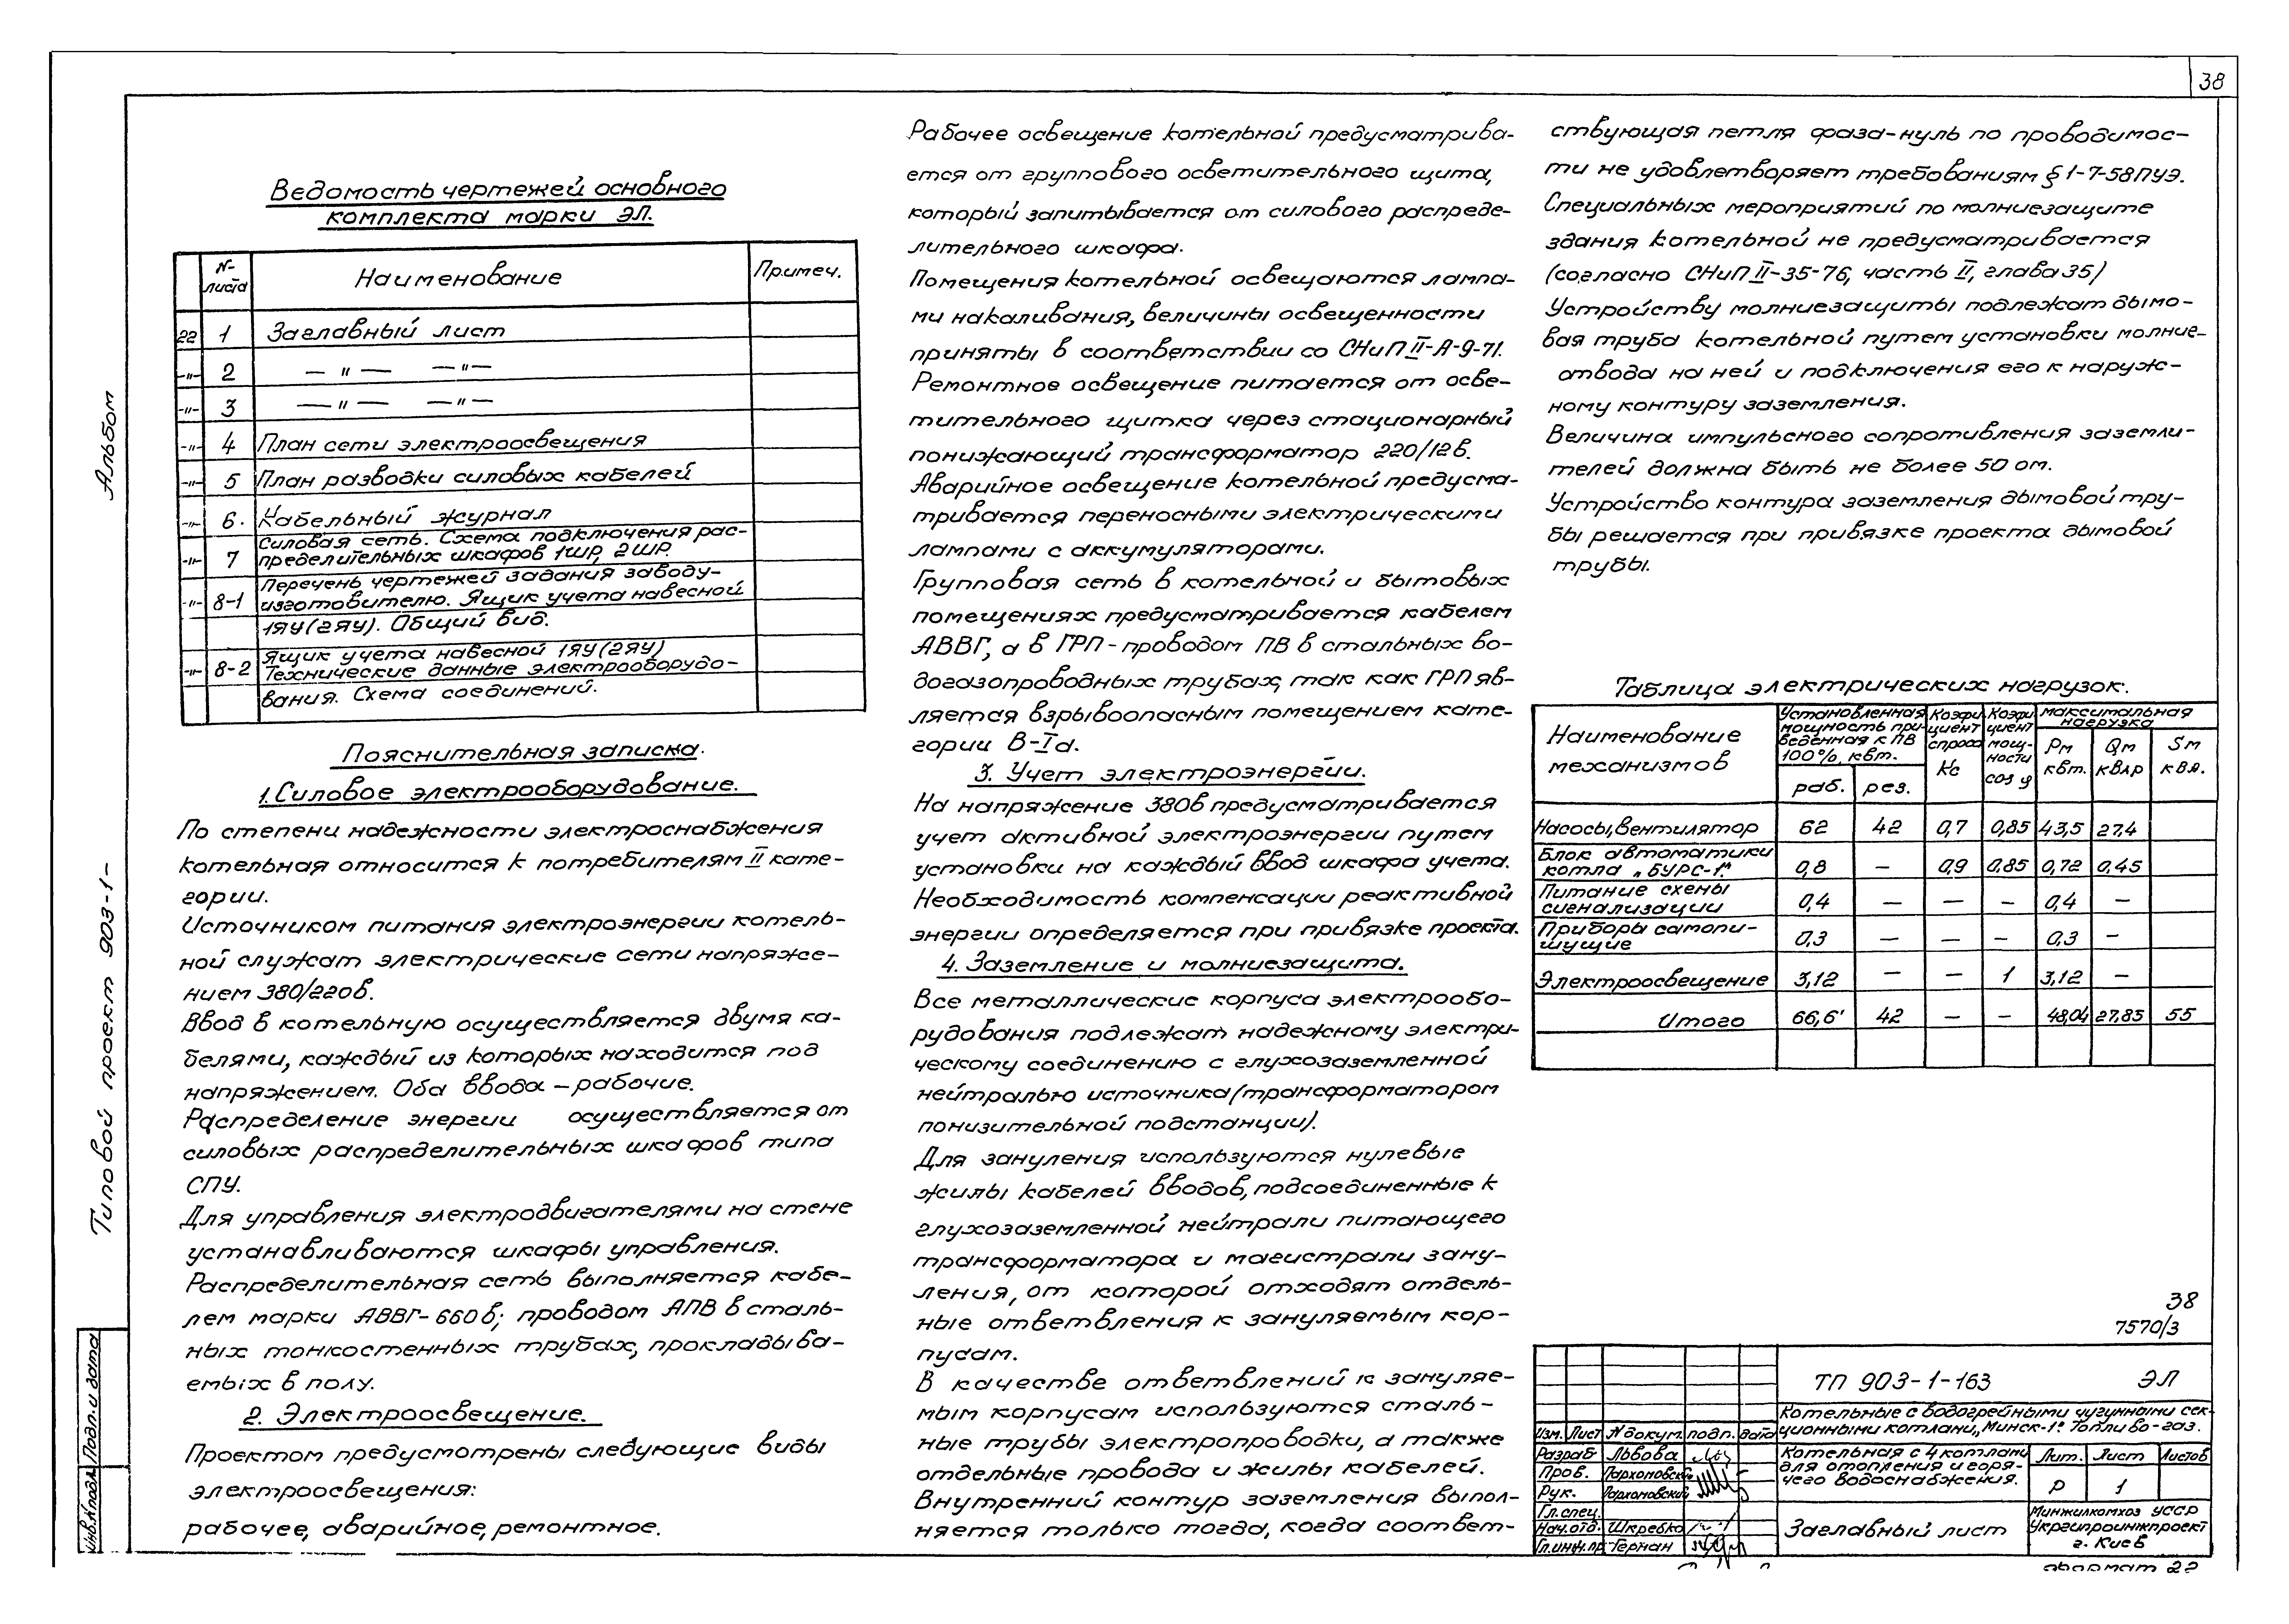 38
Альбом
Типовой проект 903-1-
Инв.№подл. Подп. и дата
Ведомость чертежей основного
комплекта марки ЭЛ.
№ листа Наименование Примеч.
22 1 Заглавный лист
-"- 2 — " — — " —
-"- 3 — " — — " —
-"- 4 План сети электроосвещения
-"- 5 План разводки силовых кабелей
-"- 6. Кабельный журнал
-"- 7 Силовая сеть. Схема подключения рас-
пределительных шкафов 1ШР, 2ШР.
-"- 8-1 Перечень чертежей задания заводу-
изготовителю. Ящик учета навесной
1ЯУ(2ЯУ). Общий вид.
-"- 8-2 Ящик учета навесной 1ЯУ(2ЯУ)
Технические данные электрооборудо-
вания. Схема соединений.
Пояснительная записка.
1. Силовое электрооборудование.
По степени надежности электроснабжения
котельная относится к потребителям II кате-
гории.
Источником питания электроэнергии котель-
ной служат электрические сети напряже-
нием 380/220в.
Ввод в котельную осуществляется двумя ка-
белями, каждый из которых находится под
напряжением. Оба ввода – рабочие.
Распределение энергии осуществляется от
силовых распределительных шкафов типа
СПУ.
Для управления электродвигателями на стене
устанавливаются шкафы управления.
Распределительная сеть выполняется кабе-
лем марки АВВГ-660в; проводом АПВ в сталь-
ных тонкостенных трубах, прокладыва-
емых в полу.
2. Электроосвещение.
Проектом предусмотрены следующие виды
электроосвещения:
рабочее, аварийное, ремонтное.
Рабочее освещение котельной предусматрива-
ется от группового осветительного щита,
который запитывается от силового распреде-
лительного шкафа.
Помещения котельной освещаются лампа-
ми накаливания, величины освещенности
приняты в соответствии со СНиП II-А-9-71.
Ремонтное освещение питается от осве-
тительного щитка через стационарный
понижающий трансформатор 220/12в.
Аварийное освещение котельной предусма-
тривается переносными электрическими
лампами с аккумуляторами.
Групповая сеть в котельной и бытовых
помещениях предусматривается кабелем
АВВГ, а в ГРП - проводом ПВ в стальных во-
догазопроводных трубах, так как ГРП яв-
ляется взрывоопасным помещением кате-
гории В-Iа.
3. Учет электроэнергии.
На напряжение 380в предусматривается
учет активной электроэнергии путем
установки на каждый ввод шкафа учета.
Необходимость компенсации реактивной
энергии определяется при привязке проекта.
4. Заземление и молниезащита.
Все металлические корпуса электрообо-
рудования подлежат надежному электри-
ческому соединению с глухозаземленной
нейтралью источника (трансформатором
понизительной подстанции).
Для зануления используются нулевые
жилы кабелей вводов, подсоединенные к
глухозаземленной нейтрали питающего
трансформатора и магистрали зану-
ления, от которой отходят отдель-
ные ответвления к зануляемым кор-
пусам.
В качестве ответвлений к зануляе-
мым корпусам используются сталь-
ные трубы электропроводки, а также
отдельные провода и жилы кабелей.
Внутренний контур заземления выпол-
няется только тогда, когда соответ-
ствующая петля фаза-нуль по проводимос-
ти не удовлетворяет требованиям § 1-7-58 ПУЭ.
Специальных мероприятий по молниезащите
здания котельной не предусматривается
(согласно СНиП II-35-76, часть II, глава 35)
Устройству молниезащиты подлежат дымо-
вая труба котельной путем установки молние-
отвода на ней и подключения его к наруж-
ному контуру заземления.
Величина импульсного сопротивления заземли-
телей должна быть не более 50 ом.
Устройство контура заземления дымовой тру-
бы решается при привязке проекта дымовой
трубы.
Таблица электрических нагрузок.
Наименование механизмов Установленная мощность при- веденная к ПВ 100%, квт. раб. рез. Коэфи циент спроса Кс Коэфи циент мощ- ности cos φ максимальная нагрузка Рм квт. Qм квар Sм ква.
Насосы, вентилятор 62 42 0,7 0,85 43,5 27,4
Блок автоматики котла „БУРС-1" 0,8 — 0,9 0,85 0,72 0,45
Питание схемы сигнализации 0,4 — — — 0,4 —
Приборы самопи- шущие 0,3 — — — 0,3 —
Электроосвещение 3,12 — — 1 3,12 —
Итого 66,6 42 — — 48,04 27,85 55
38
7570/3
ТП 903-1-163 ЭЛ
Котельные с водогрейными чугунными сек-
ционными котлами „Минск-1". Топливо-газ.
Изм. Лист № докум. подп. Дата
Разраб Львова
Пров. Пархомовский
Рук. Пархомовский
Гл.спец.
Нач.отд. Шкребко
Гл.инж.пр Герман
Котельная с 4 котлами
для отопления и горя-
чего водоснабжения.
Лит. Лист Листов
Р 1
Заглавный лист
Минжилкомхоз УССР
Укргипроинжпроект
г. Киев
Формат 22